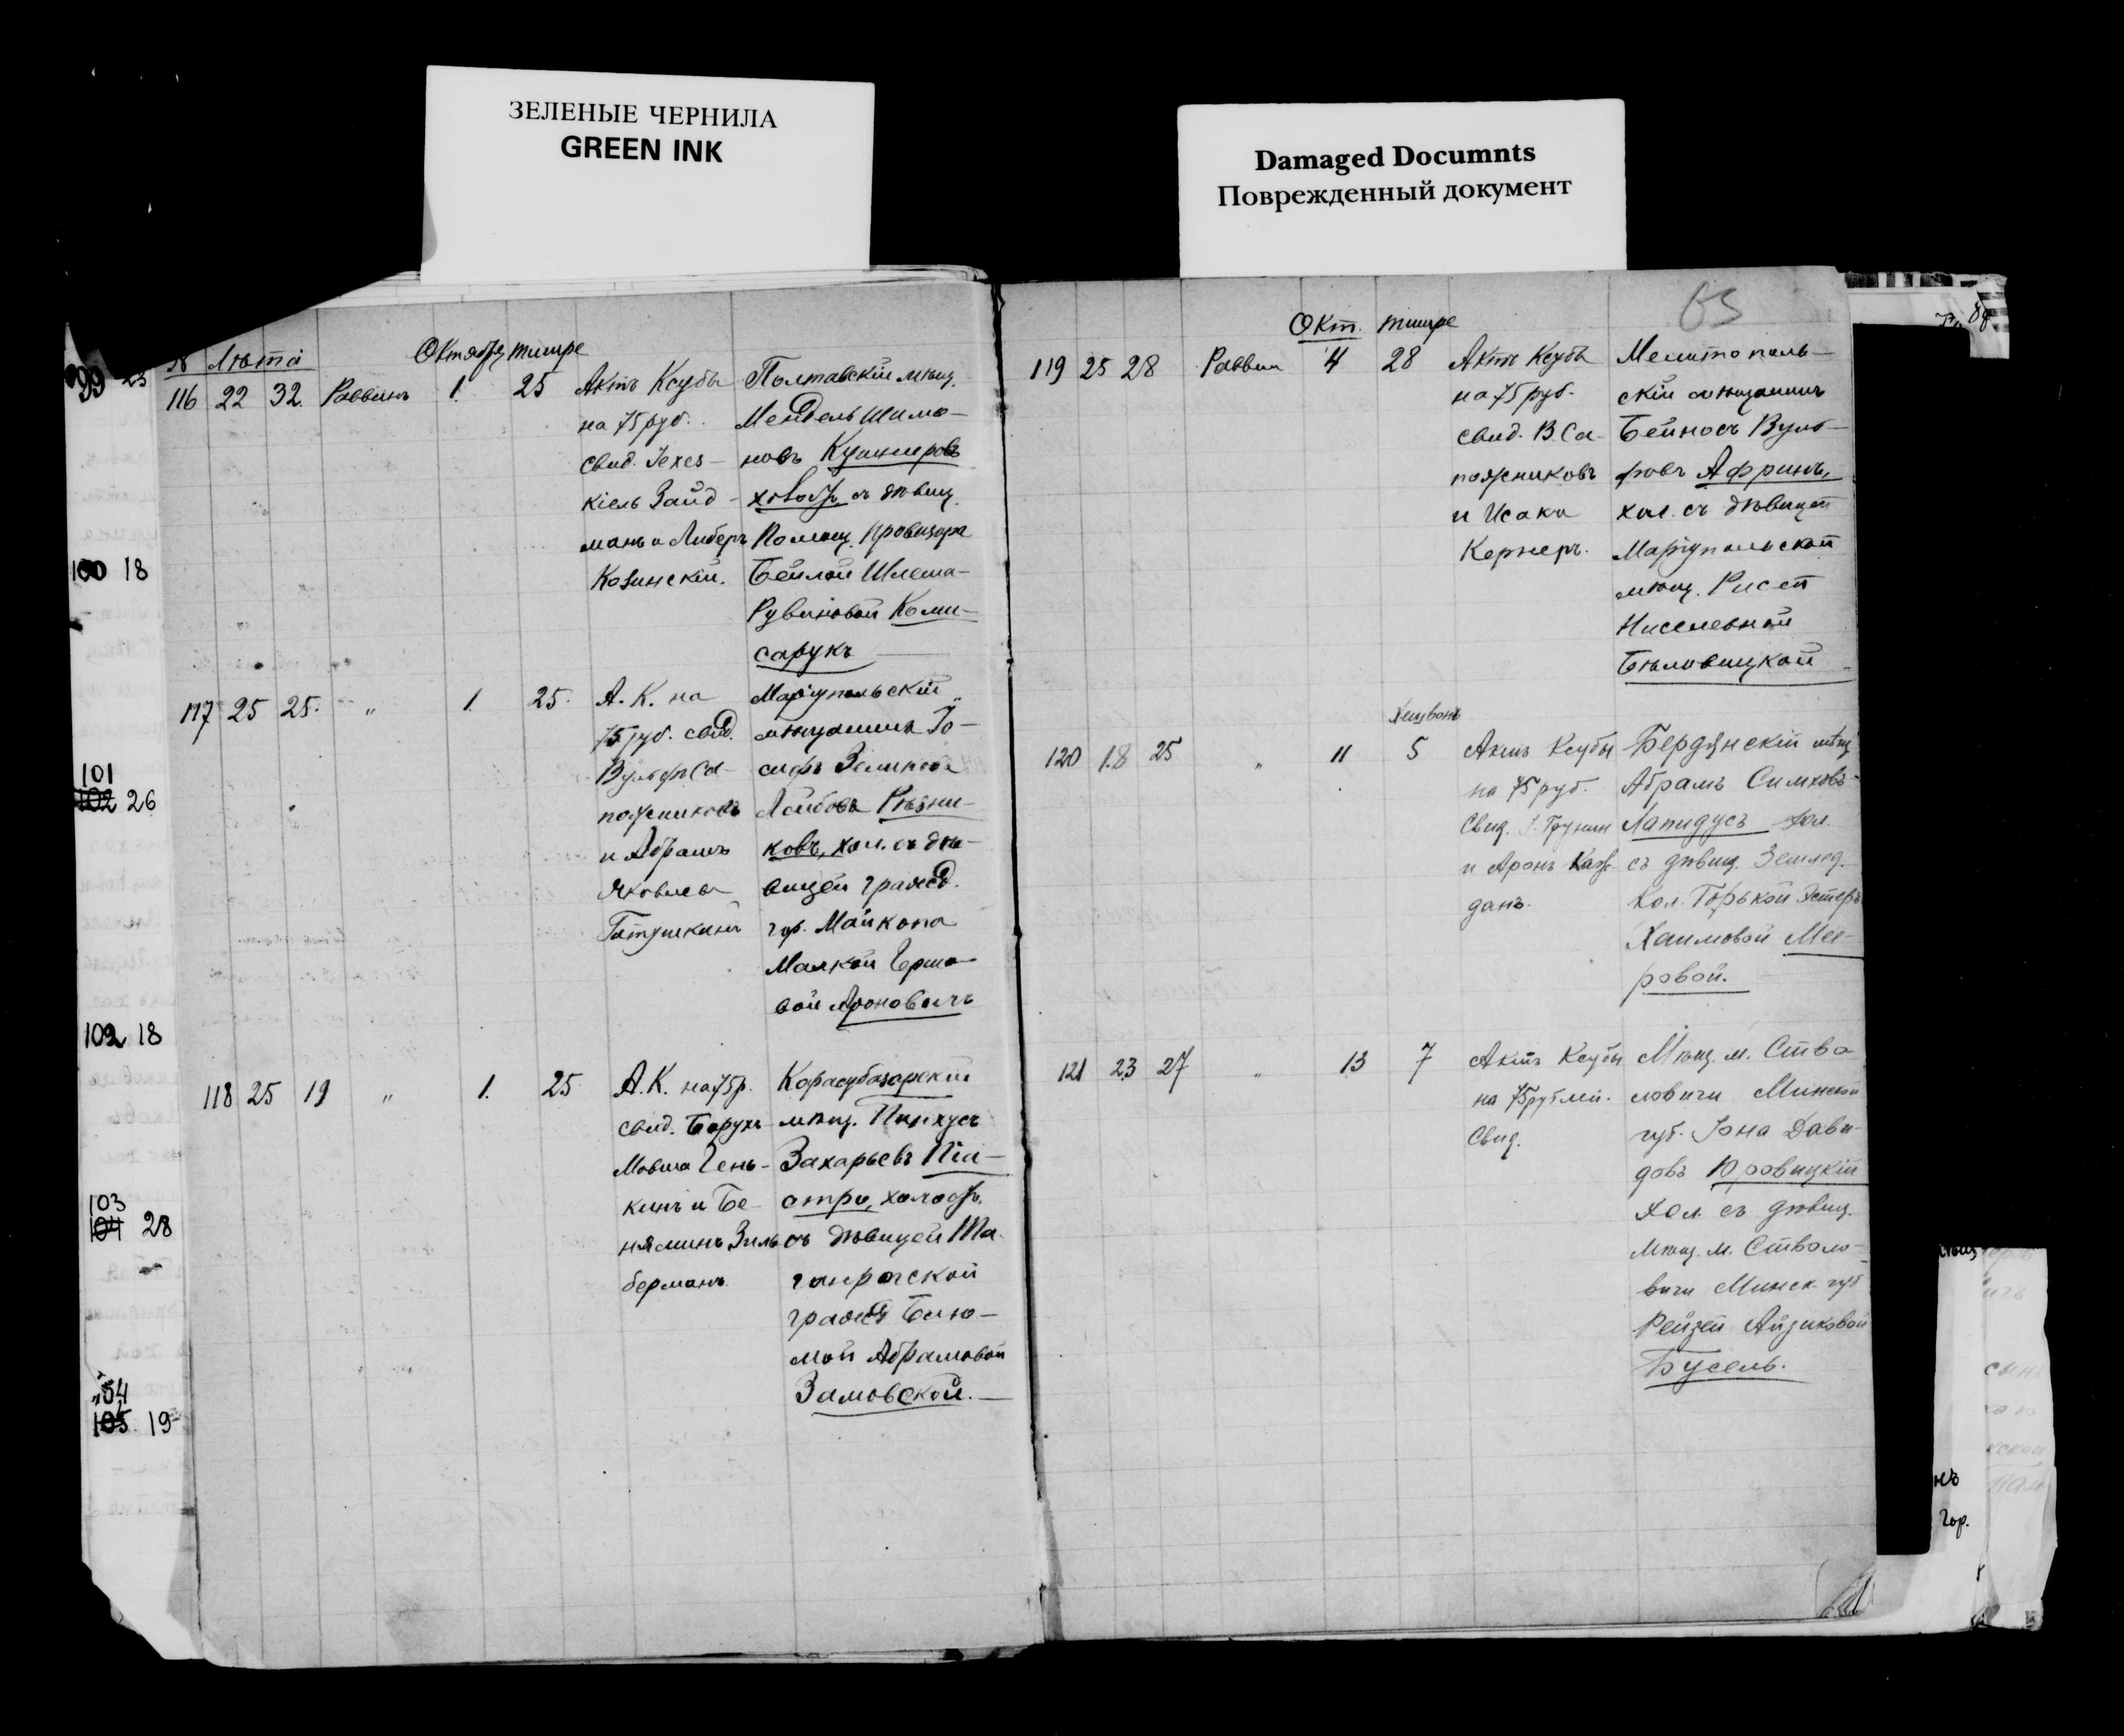 ЗЕЛЕНЫЕ ЧЕРНИЛА
GREEN INK
Damaged Documnts
Поврежденный документ
№ Лѣта Октября тишре
116 22 32. Раввинъ 1. 25
Актъ Ксубы
на 75 руб.
свид. Іехез-
кіель Зайд-
манъ и Либеръ
Козинскій.
Полтавскій мѣщ.
Мендель Шимо-
новъ Кушнеровъ
холост. съ дѣвиц.
Помощ. Провизора
Бейлой Шлема-
Рувиновой Коми-
сарукъ
117 25 25. " 1. 25.
А. К. на
75 руб. свид.
Вульфъ Са-
пожниковъ
и Абрамъ
Яковлевъ
Маріупольскій
мѣщанинъ Іо-
сифъ Зеликовъ
Лейбовъ Рѣзни-
ковъ, хол. съ дѣ-
вицей гражд.
гор. Майкопа
Малкой Гершо-
вой Ароновичъ
118 25 19 " 1. 25
А. К. на 75 р.
свид. Борухъ
Мовша Гень-
кинъ и Бе-
няминъ Зиль
берманъ.
Карасубазарскій
мѣщ. Пинхусъ
Захарьевъ Піа-
стро, холост.
съ дѣвицей Та-
ганрогской
гражд. Блю-
мой Абрамовой
Замовской.
99 23
100 18
101
102 26
102 18
103
104 28
105. 19
63
Окт. тишре
119 25 28 Раввин 4 28
Актъ Ксубы
на 75 руб.
свид. В. Са-
пожниковъ
и Исакъ
Кернеръ.
Мелитополь-
скій мѣщанинъ
Бейносъ Вуль-
фовъ Афринъ,
хол. съ дѣвицей
Маріупольской
мѣщ. Рисей
Ниселевной
Бѣловицкой
Хешвонъ
120 18 25 " 11 5
Актъ Ксубы
на 75 руб.
Свид. Грунин
и Аронъ Каж-
данъ.
Бердянскій мѣщ
Абрамъ Симховъ-
Лапидусъ хол.
съ дѣвиц. Землед.
Кол. Горькой Эстеръ
Хаимовой Мее-
ровой.
121 23 27 " 13 7
Актъ Ксубы
на 75 рублей.
Свид.
Мѣщ. м. Ство
ловичи Минской
губ. Іона Дави-
довъ Юровицкій
Хол. съ дѣвиц.
Мѣщ. м. Стволо-
вичи Минск. губ
Рейзей Айзиковой
Бусель.
нъ
Гор.